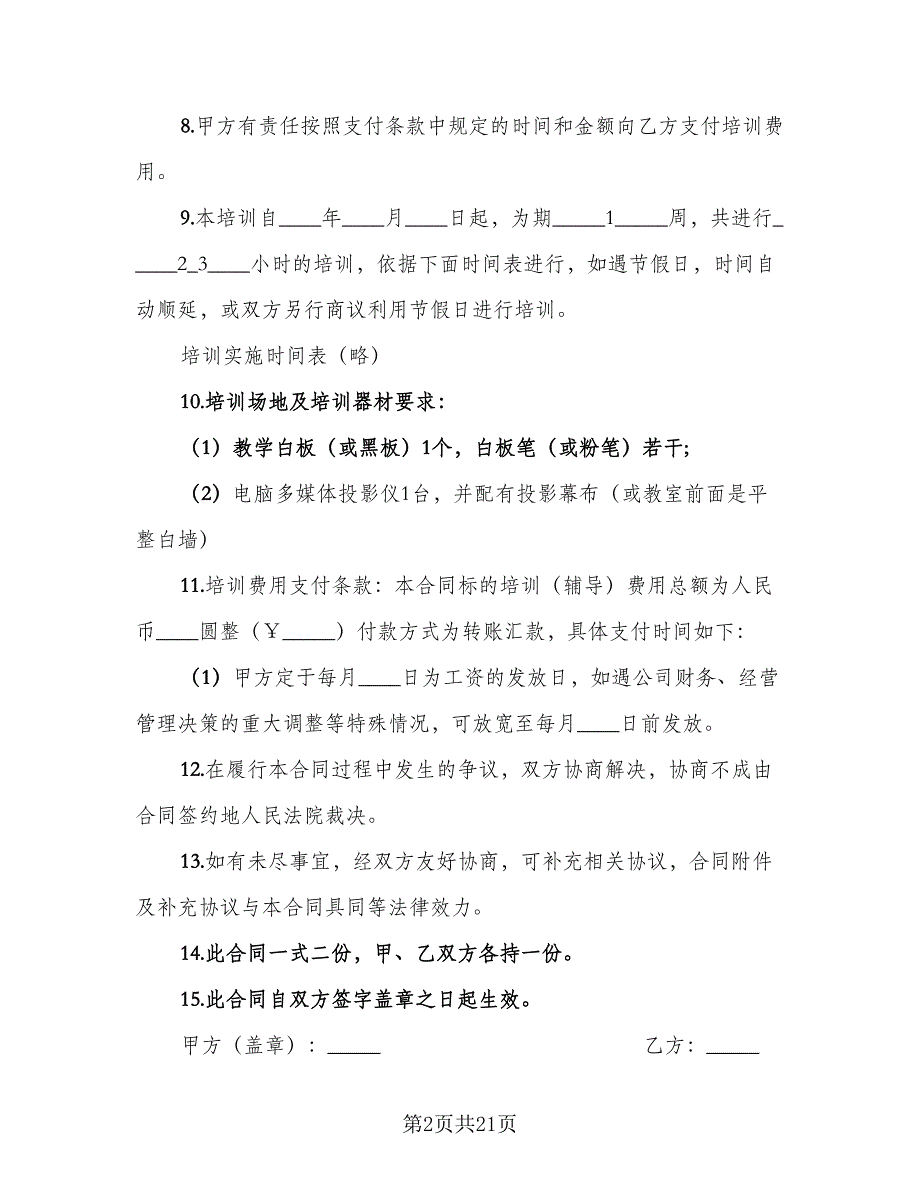 8.甲方有责任按照支付条款中规定的时间和金额向乙方支付培训费
用。
9.本培训自____年____月____日起，为期_____1_____周，共进行_
____2_3____小时的培训，依据下面时间表进行，如遇节假日，时间自
动顺延，或双方另行商议利用节假日进行培训。
培训实施时间表（略）
10.培训场地及培训器材要求：
（1）教学白板（或黑板）1个，白板笔（或粉笔）若干；
（2）电脑多媒体投影仪1台，并配有投影幕布（或教室前面是平
整白墙）
11.培训费用支付条款：本合同标的培训（辅导）费用总额为人民
币____圆整（￥_____）付款方式为转账汇款，具体支付时间如下：
（1）甲方定于每月____日为工资的发放日，如遇公司财务、经营
管理决策的重大调整等特殊情况，可放宽至每月____日前发放。
12.在履行本合同过程中发生的争议，双方协商解决，协商不成由
合同签约地人民法院裁决。
13.如有未尽事宜，经双方友好协商，可补充相关协议，合同附件
及补充协议与本合同具同等法律效力。
14.此合同一式二份，甲、乙双方各持一份。
15.此合同自双方签字盖章之日起生效。
甲方（盖章）：_____ 乙方：_____
第2页共21页